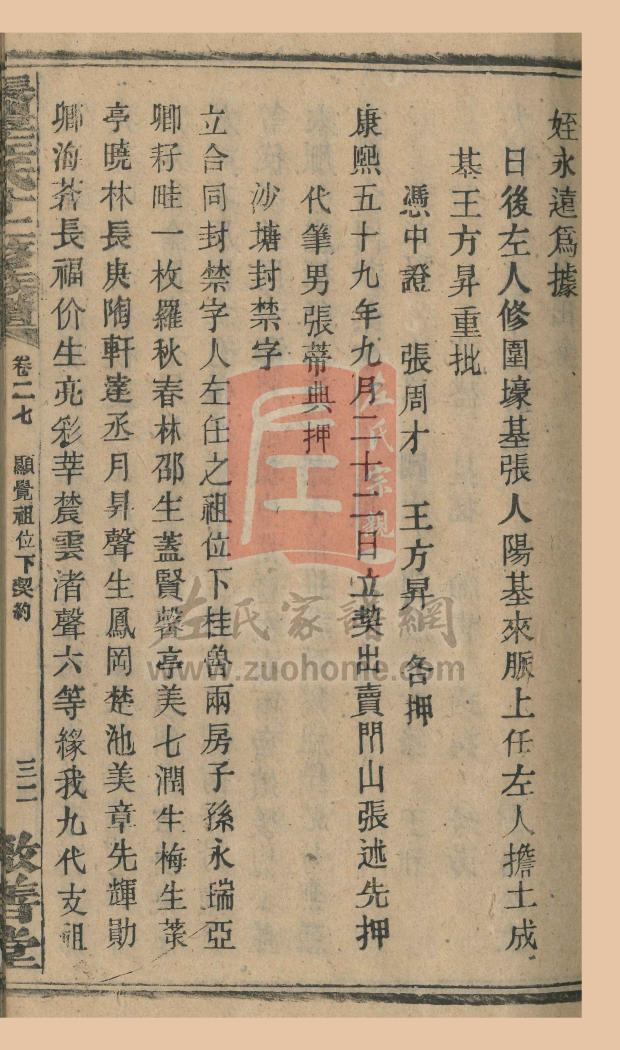 姪永遠爲據
日後左人修圍壕基張人陽基來脈上任左人擔土成
基王方昇重批
憑中證 張周才 王方昇 各押
康熙五十九年九月二十二日立契出賣閂山張述先押
代筆男張蒂典押
沙塘封禁字
立合同封禁字人左任之祖位下桂魯兩房子孫永瑞亞
卿籽畦一枚羅秋春林邵生蓋賢馨亭美七潤生梅生菉
亭曉林長庚陶軒達丞月昇聲生鳳岡楚池美章先輝勛
卿海蒼長福价生亮彩莘蓘雲渚聲六等緣我九代支祖
卷二七 顯覺祖位下契約 三二
敦善堂
左氏宗親
左氏家譜網
www.zuohome.com